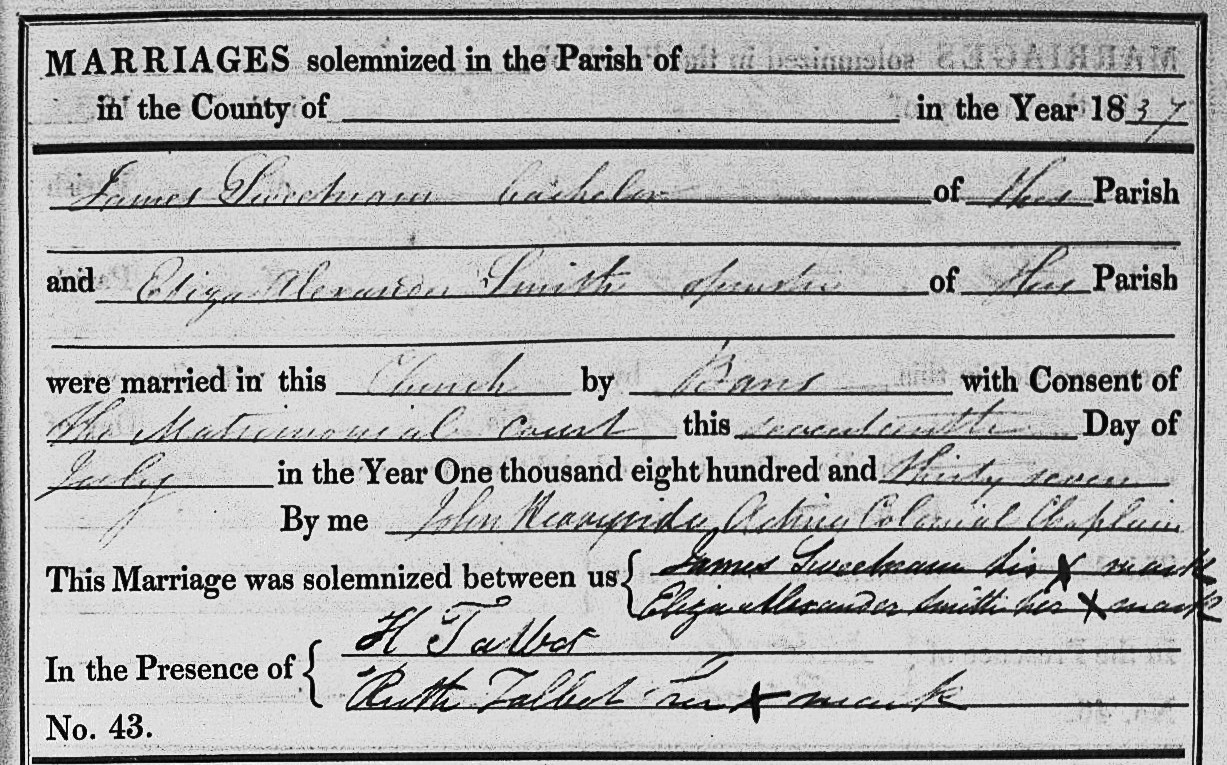 MARRIAGES solemnized in the Parish of
in the County of in the Year 1837
James Sweetnam bachelor of this Parish
and Eliza Alexander Smith spinster of this Parish
were married in this Church by Bans with Consent of
The Matrimonial Court this seventeenth Day of
July in the Year One thousand eight hundred and Thirty seven
By me John Acting Colonial Chaplain
This Marriage was solemnized between us { James Sweetnam his X mark
Eliza Alexander Smith her X mark
In the Presence of { H Talbot
Ruth Talbot her X mark
No. 43.